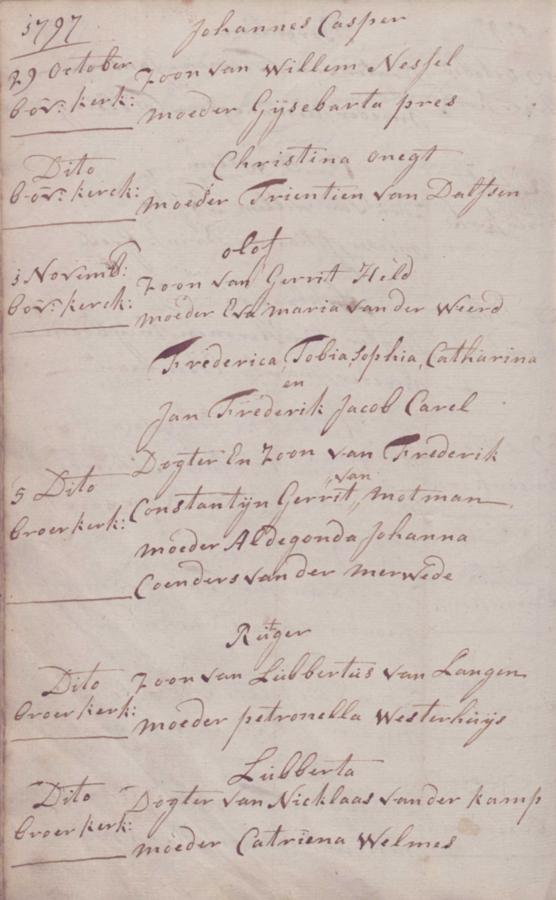 1797
Johannes Casper
29 October zoon van Willem Nessel
bov: kerk: moeder Gijsebarta pres
Christina onegt
Dito
bov: kerck: moeder Trientien van Dalfsen
olof
1 Novemb: zoon van Gerrit Held
bov: kerck: moeder Eva maria van der Weerd
Frederica, Tobia, Sophia, Catharina
en
Jan Frederik Jacob Carel
Dogter En zoon van Frederik
van
5 Dito Constantijn Gerrit, motman
broer kerk: moeder Aldegonda Johanna
Coenders van der merwede
Rutger
Dito zoon van Lubbertus van Langen
broer kerk: moeder petronella Westerhuijs
Lubberta
Dito Dogter van Nicklaas van der kamp
broer kerk: moeder Catriena Welmes